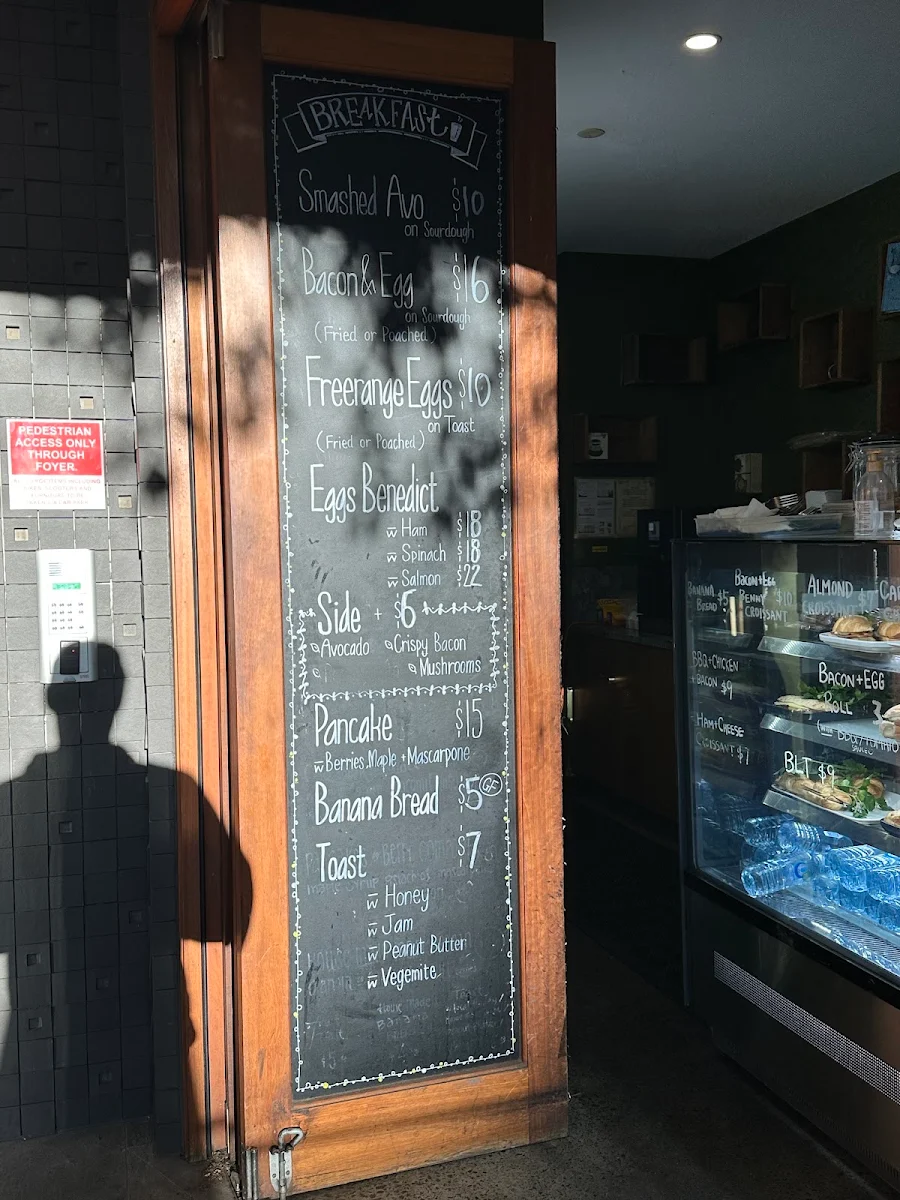 BREAKFAST
Smashed Avo $10
on Sourdough
Bacon & Egg $16
on Sourdough
(Fried or Poached)
Freerange Eggs $10
on Toast
(Fried or Poached)
Eggs Benedict
w Ham $18
w Spinach $18
w Salmon $22
Side + $6
Avocado Crispy Bacon
Mushrooms
Pancake $15
w Berries, Maple + Mascarpone
Banana Bread $5 GF
Toast $7
w Honey
w Jam
w Peanut Butter
w Vegemite
PEDESTRIAN
ACCESS ONLY
THROUGH
FOYER.
BANANA
BREAD $5
BACON+EGG
BENNY $10
CROISSANT
ALMOND
CROISSANT $7
BBQ+CHICKEN
+BACON $9
BACON+EGG
ROLL
HAM+CHEESE
CROISSANT $7
BLT $9